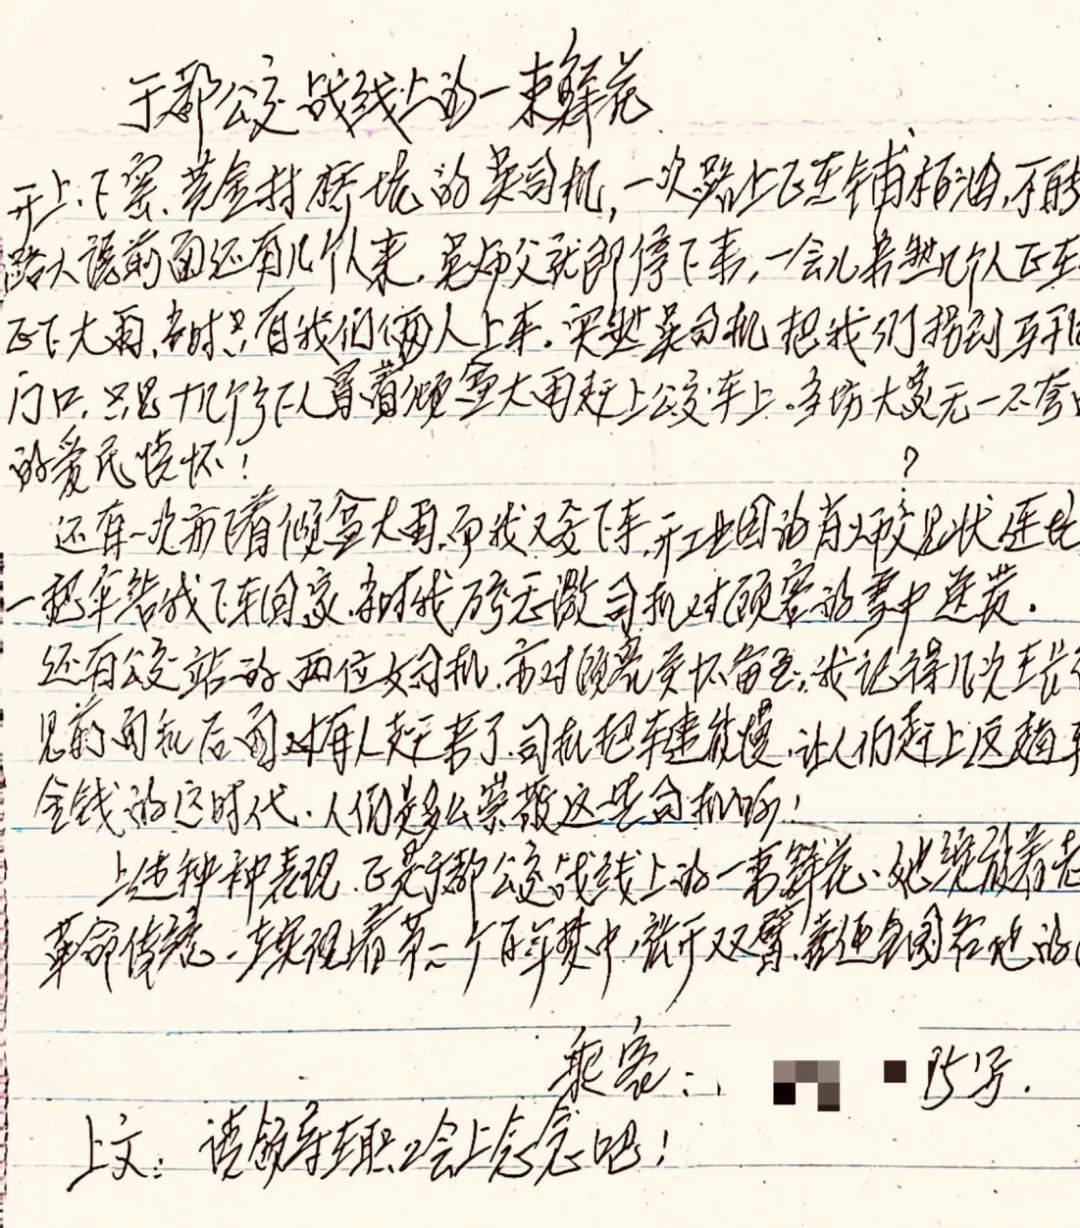 于都公交战线上的一束鲜花
开上、下窑、黄金村桥坑的吴司机，一次路上正在铺柏油，不能
路大说前面还有几个人来，吴师父就即停下来，一会儿果然几个人正在
正下大雨，当时只有我们俩人上车。突然吴司机把我们拐到
门口，只见十几个人冒着倾盆大雨赶上公交车上。在场大家无一不夸
的爱民情怀！
？
还有一次亦下着倾盆大雨，而我又要下车，开工业园的肖师父见状连忙
一把伞给我下车回家，当时我万分感激司机对顾客的雪中送炭。
还有公交站的两位女司机，亦对顾客关怀备至，我记得几次在
见前面和后面对有人赶来了，司机把车速放慢，让人们赶上这趟车
金钱的这时代，人们是多么崇敬这些司机哟！
上述种种表现，正是于都公交战线上的一束鲜花，她绽放着
革命传统，在实现着第一个百年梦中，张开双臂，喜迎全国各地的
乘客： 写.
上文：请领导在职工会上念念吧！